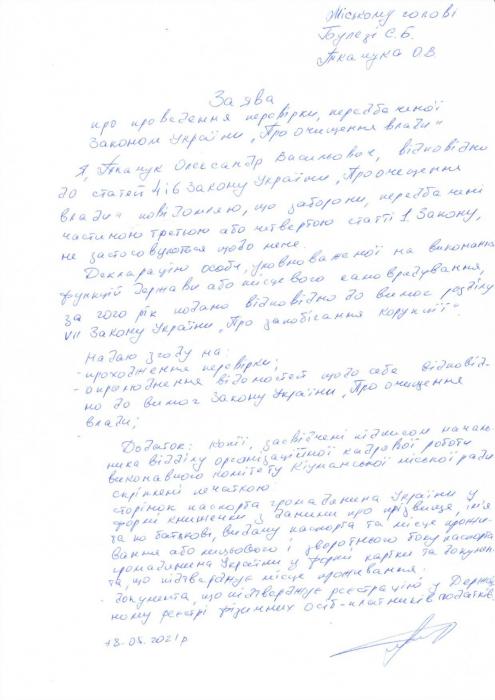 Міському голові
Булезі С.Б.
Ткачука О.В.
Заява
про проведення перевірки, передбаченої
Законом України „Про очищення влади"
Я, Ткачук Олександр Васильович, відповідно
до статей 4 і 6 Закону України „Про очищення
влади" повідомляю, що заборони, передбачені
частиною третьою або четвертою статті 1 Закону,
не застосовуються щодо мене.
Декларацію особи, уповноваженої на виконання
функцій держави або місцевого самоврядування,
за рік подано відповідно до вимог розділу
VII Закону України „Про запобігання корупції".
Надаю згоду на:
- проходження перевірки;
- оприлюднення відомостей щодо себе відповід-
но до вимог Закону України „Про очищення
влади;
Додаток: копії, засвідчені підписом началь-
ника відділу організаційної кадрової роботи
виконавчого комітету Кіцманської міської ради
скріплені печаткою
сторінок паспорта громадянина України у
формі книжечки з даними про прізвище, ім'я
та по батькові, видачу паспорта та місце прожи-
вання або лицьового і зворотнього боку паспорта
громадянина України у формі картки та докумен-
та, що підтверджує місце проживання.
- документа, що підтверджує реєстрацію у Держав-
ному реєстрі фізичних осіб-платників податків.
18.05.2021р